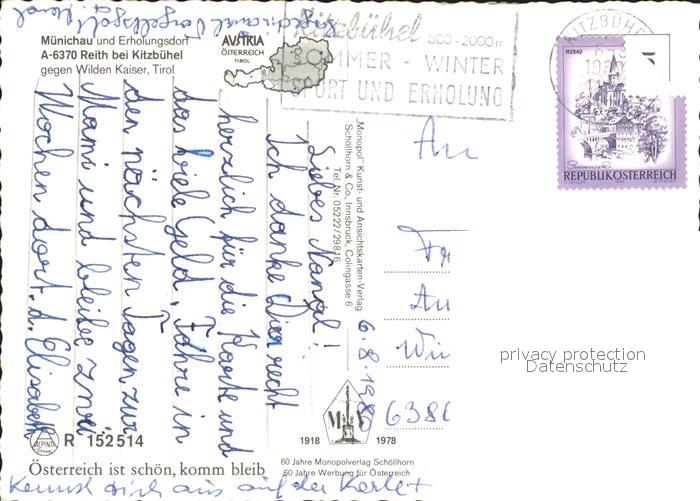 Münichau und Erholungsdorf
A-6370 Reith bei Kitzbühel
gegen Wilden Kaiser, Tirol
AUSTRIA
ÖSTERREICH
TIROL
Kitzbühel 800-2000m
SOMMER - WINTER
SPORT UND ERHOLUNG
KITZBÜHEL
MURAU
REPUBLIK ÖSTERREICH
Liebes Nannal!
Ich danke Dir recht
herzlich für die Karte und
das viele Geld. Fahre in
den nächsten Tagen zur
Mami und bleibe zwei
Wochen dort. d. Elisabeth
6.8.1980
"Monopol" Kunst- und Ansichtskarten-Verlag
Schöllhorn & Co., Innsbruck, Colingasse 6
Tel. Nr. 05222/29816
An
Wü
6380
privacy protection
Datenschutz
ALPINA
R 152514
Österreich ist schön, komm bleib
1918 M S 1978
60 Jahre Monopolverlag Schöllhorn
60 Jahre Werbung für Österreich
Kennst dich aus auf der Karte